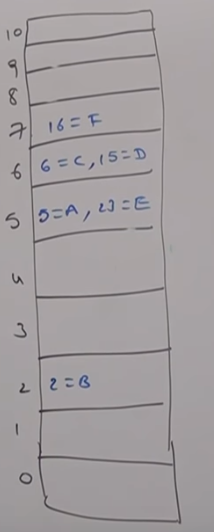 10
9
8
7 16=F
6 6=C, 15=D
5 5=A, 23=E
4
3
2 2=B
1
0